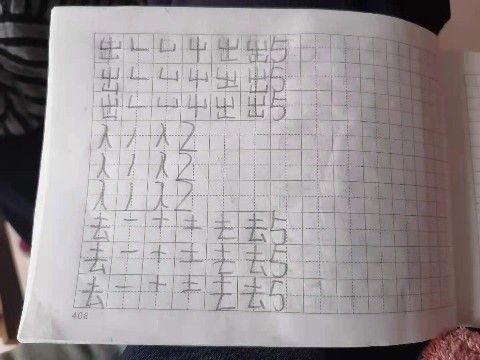 出 ㇄ 凵 屮 出 出 5
出 ㇄ 凵 屮 出 出 5
出 ㇄ 凵 屮 出 出 5
入 丿 入 2
入 丿 入 2
入 丿 入 2
去 一 十 土 去 5
去 一 十 土 去 5
去 一 十 土 去 5
408